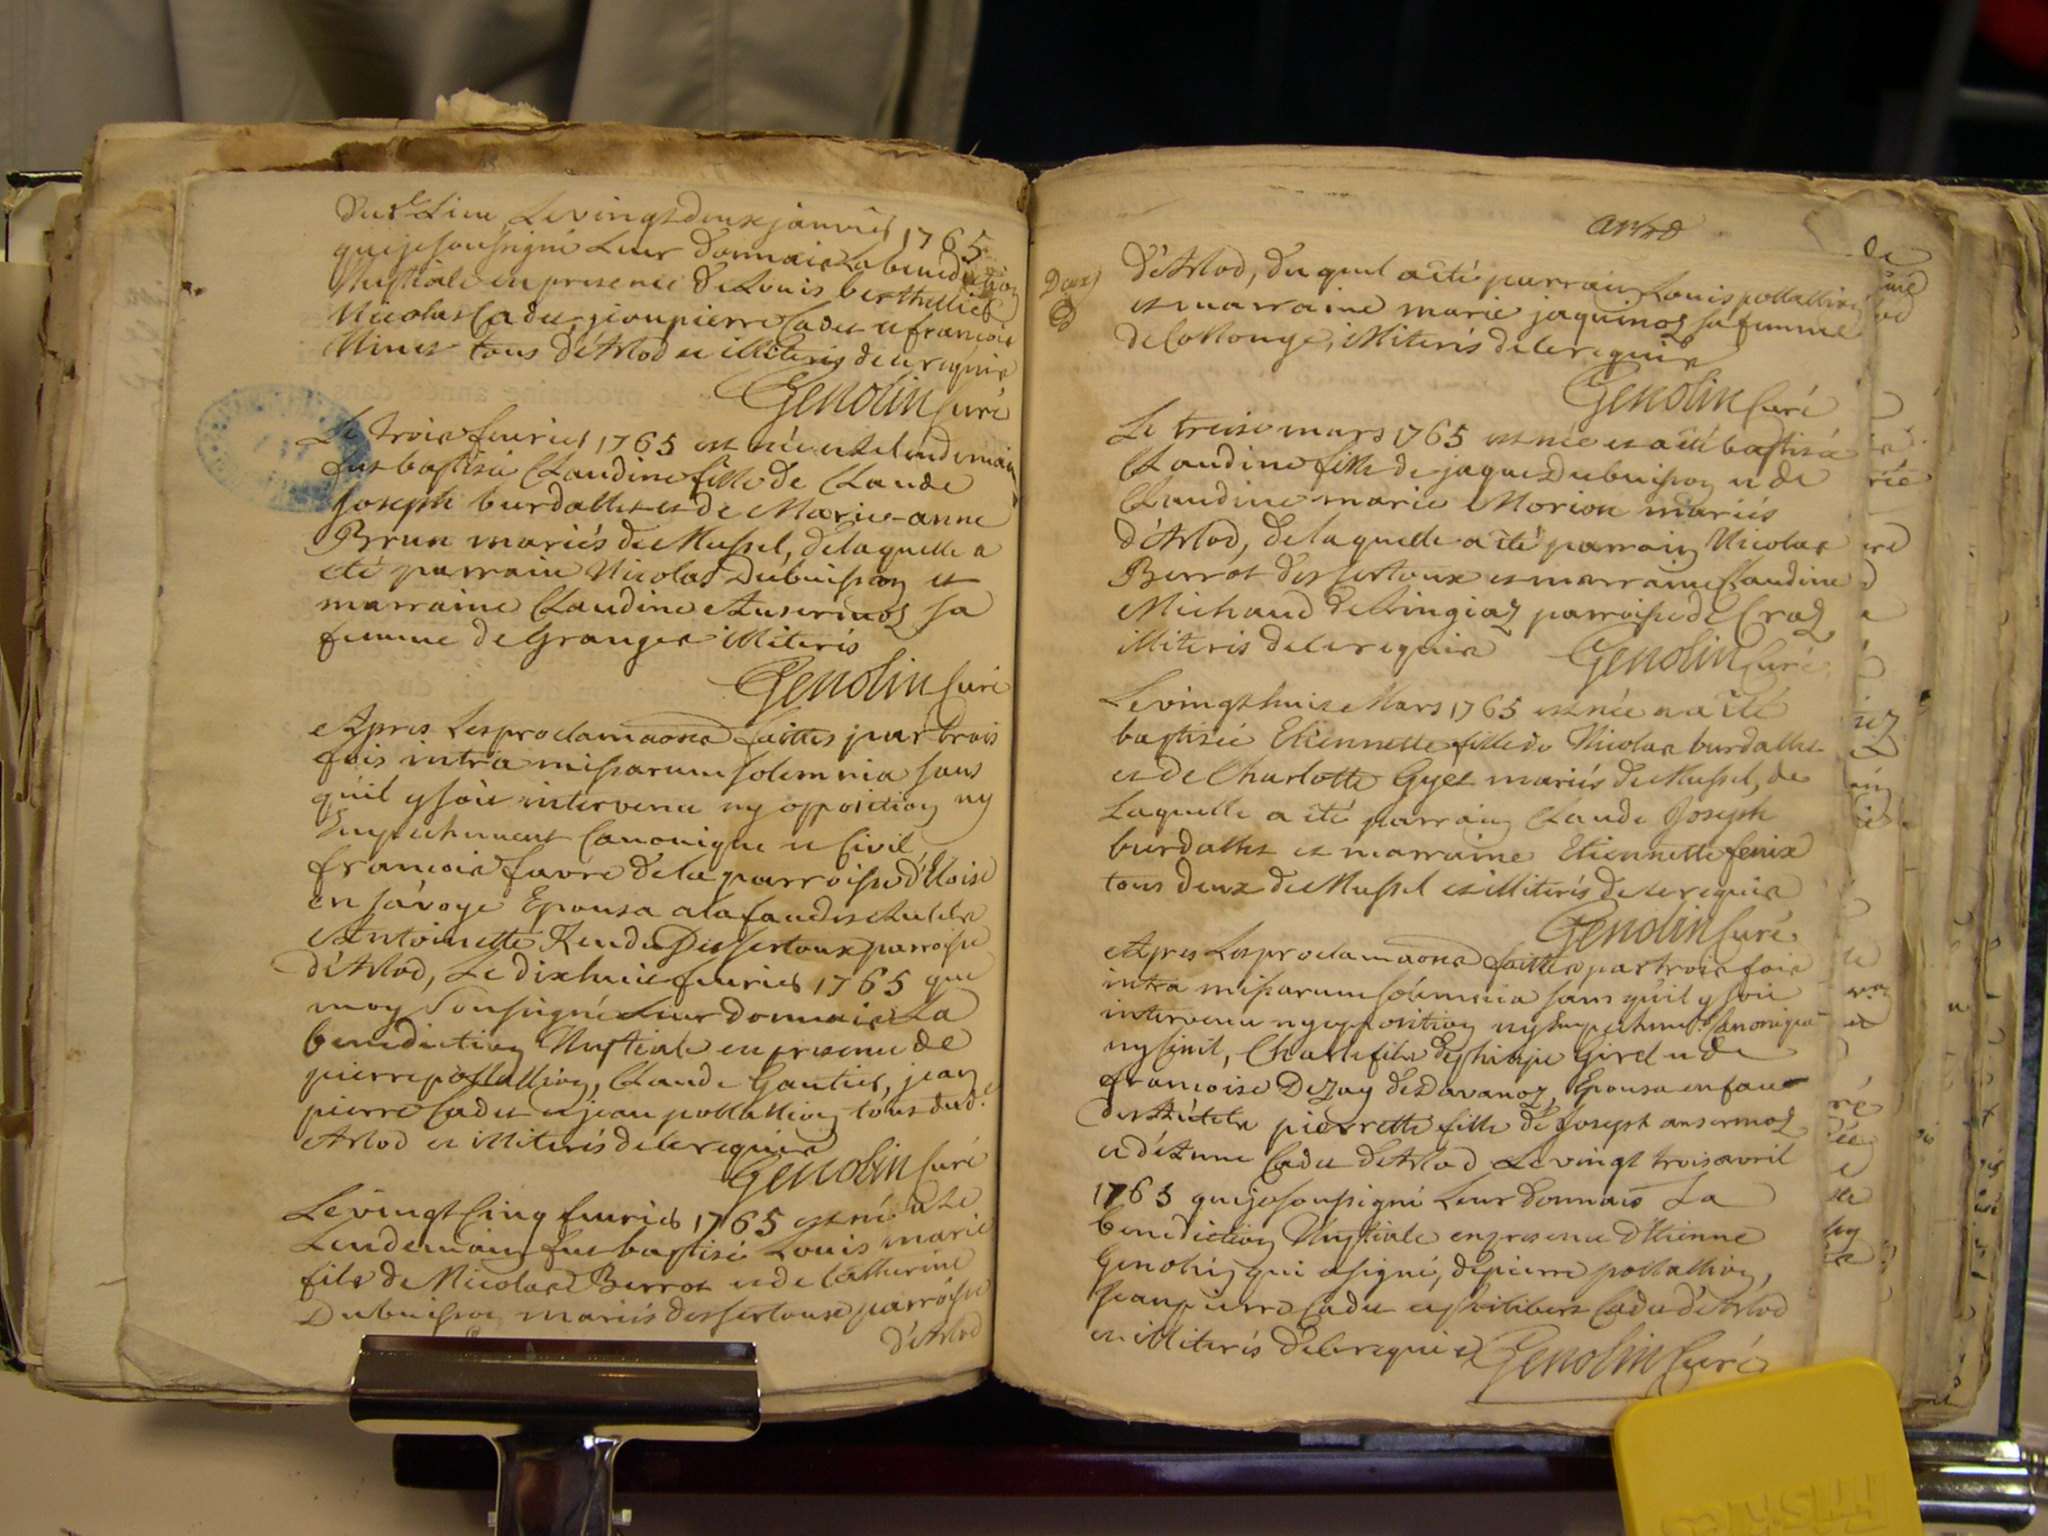 Dud. Lieu Le vingt deux janvier 1765
que je soussigné Leur donnais La benediction
Nuptiale en presence de Louis berthellier
Nicolas Cadu, jean pierre Cadu et francois
tous d'Arlod et illiteris de ce requis
Genolin Curé
Le trois feuvrier 1765 est née et Le lendemain
fut baptisée Claudine fille de Claude
Joseph burdallet et de Marie-anne
Brun mariés de Mussel, de laquelle a
eté parrain Nicolas Dubuisson et
marraine Claudine Anserinoz sa
femme de Granges illiteris
Genolin Curé
Apres Les proclamaons faittes par trois
fois intra missarum solemnia sans
qu'il y soit intervenu ny opposition ny
Empechement Canonique et Civil
francois favre de la parroisse d'Eloise
en savoye Epousa a la face des autels
Antoinette Rendu Des sertoux parroisse
d'Arlod, Le dixhuit feuvrier 1765 que
moy soussigné Leur donnais La
benediction Nuptiale en presence de
pierre pottallion, Claude Gautier, jean
pierre Cadu et jean pottallion tous dud.
Arlod et illiteris de ce requis
Genolin Curé
Le vingt Cinq feuvrier 1765 est né et Le
Lendemain fut baptisé Louis marie
fils de Nicolas Berrot et de Catherine
Dubuisson mariés des sertoux parroisse
d'Arlod
Deux
d'Arlod, du quel a eté parrain Louis pottallion
et marraine marie jaquinoz sa femme
de Collonge, illiteris de ce requis
Genolin Curé
Le treise mars 1765 est née et a eté baptisée
Claudine fille de jaques Dubuisson et de
Claudine marie Morion mariés
d'Arlod, de laquelle a eté parrain Nicolas
Berrot des sertoux et marraine Claudine
Michaud de Gingiaz parroisse de Craz
illiteris de ce requis Genolin Curé
Le vingt huit Mars 1765 est née et a eté
baptisée Etiennette fille de Nicolas burdallet
et de Charlotte Gyet mariés de Mussel, de
Laquelle a eté parrain Claude Joseph
burdallet et marraine Etiennette fenix
tous deux de Mussel et illiteris de ce requis
Genolin Curé
Apres Les proclamaons faittes par trois fois
intra missarum solemnia sans qu'il y soit
intervenu ny opposition ny Empechemt. Canonique
ny Civil, Charle fils de Girel et de
francoise Dezay de Davanoz, Epousa en face
des Autels pierrette fille de Joseph ansermoz
et d'Anne Cadu d'Arlod Le vingt trois avril
1765 que je soussigné Leur donnais La
benediction Nuptiale en presence d'Etienne
Genolin qui a signé, de pierre pottallion,
Jean pierre Cadu et philibert Cadu d'Arlod
et illiteris de ce requis Genolin Curé